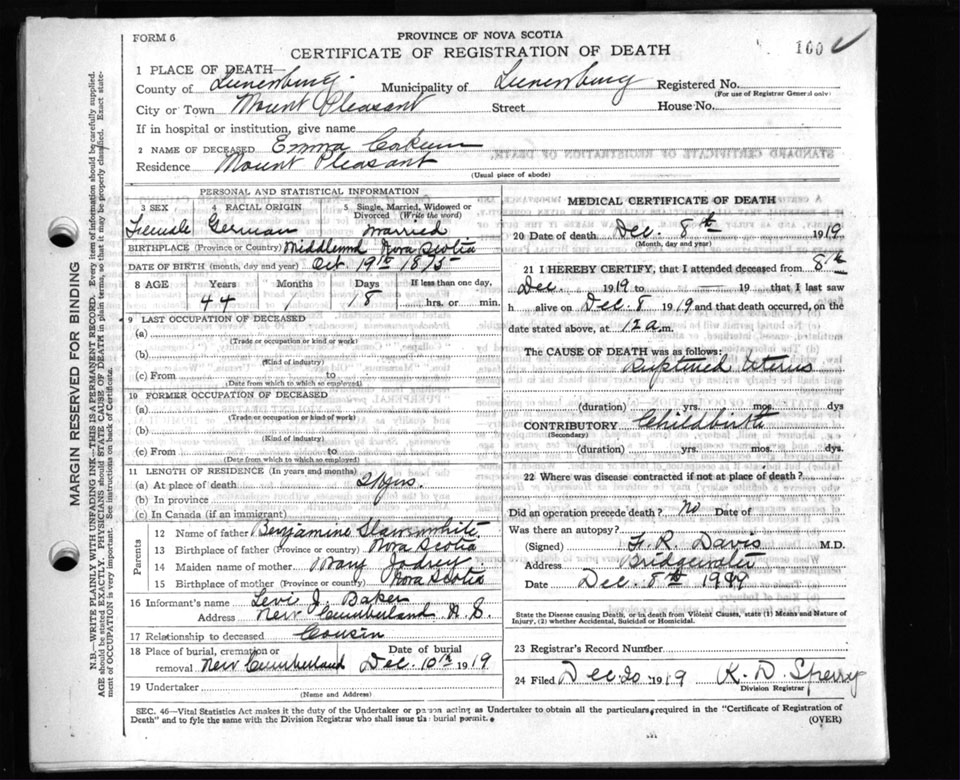 FORM 6
PROVINCE OF NOVA SCOTIA
CERTIFICATE OF REGISTRATION OF DEATH
160
1 PLACE OF DEATH—
County of Lunenburg. Municipality of Lunenburg Registered No.
(For use of Registrar General only)
City or Town Mount Pleasant Street House No.
If in hospital or institution, give name
2 NAME OF DECEASED Emma
Residence Mount Pleasant
(Usual place of abode)
PERSONAL AND STATISTICAL INFORMATION
3 SEX 4 RACIAL ORIGIN 5 Single, Married, Widowed or Divorced (Write the word)
Female German Married
BIRTHPLACE (Province or Country) Nova Scotia
DATE OF BIRTH (month, day and year) Oct 19th 1875
8 AGE Years Months Days If less than one day,
44 1 18 hrs. or min.
9 LAST OCCUPATION OF DECEASED
(a)
(Trade or occupation or kind or work)
(b)
(Kind of industry)
(c) From to
(Date from which to which so employed)
10 FORMER OCCUPATION OF DECEASED
(a)
(Trade or occupation or kind of work)
(b)
(Kind of industry)
(c) From to
(Date from which to which so employed)
11 LENGTH OF RESIDENCE (In years and months)
(a) At place of death yrs.
(b) In province
(c) In Canada (if an immigrant)
Parents
12 Name of father Benjamine Slawenwhite
13 Birthplace of father (Province or country) Nova Scotia
14 Maiden name of mother Mary Jodrey
15 Birthplace of mother (Province or country) Nova Scotia
16 Informant's name Levi J. Baker
Address New Cumberland N. S.
17 Relationship to deceased Cousin
18 Place of burial, cremation or removal New Cumberland
Date of burial Dec. 10th 1919
19 Undertaker
(Name and Address)
MEDICAL CERTIFICATE OF DEATH
20 Date of death Dec. 8th 1919
(Month, day and year)
21 I HEREBY CERTIFY, that I attended deceased from 8th
Dec. 1919 to — 19 that I last saw
h alive on Dec. 8 1919 and that death occurred, on the
date stated above, at 12 a.m.
The CAUSE OF DEATH was as follows:
Ruptured Uterus
(duration) yrs. mos. dys
CONTRIBUTORY Childbirth
(Secondary)
(duration) yrs. mos. dys.
22 Where was disease contracted if not at place of death?
Did an operation precede death? No Date of
Was there an autopsy?
(Signed) F. R. Davis M.D.
Address Bridgewater
Date Dec. 8th 1919
State the Disease causing Death, or in death from Violent Causes, state (1) Means and Nature of
Injury, (2) whether Accidental, Suicidal or Homicidal.
23 Registrar's Record Number
24 Filed Dec 20 1919 K. D. Sperry
Division Registrar
SEC. 46—Vital Statistics Act makes it the duty of the Undertaker or person acting as Undertaker to obtain all the particulars, required in the "Certificate of Registration of
Death" and to fyle the same with the Division Registrar who shall issue the burial permit.
(OVER)
MARGIN RESERVED FOR BINDING
N.B.—WRITE PLAINLY WITH UNFADING INK—THIS IS A PERMANENT RECORD. Every item of information should be carefully supplied.
AGE should be stated EXACTLY. PHYSICIANS should STATE CAUSE OF DEATH in plain terms, so that it may be properly classified. Exact statement of OCCUPATION is very important. See instructions on back of Certificate.